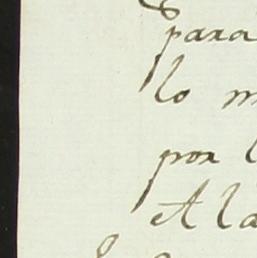 para
lo m
por l
A la